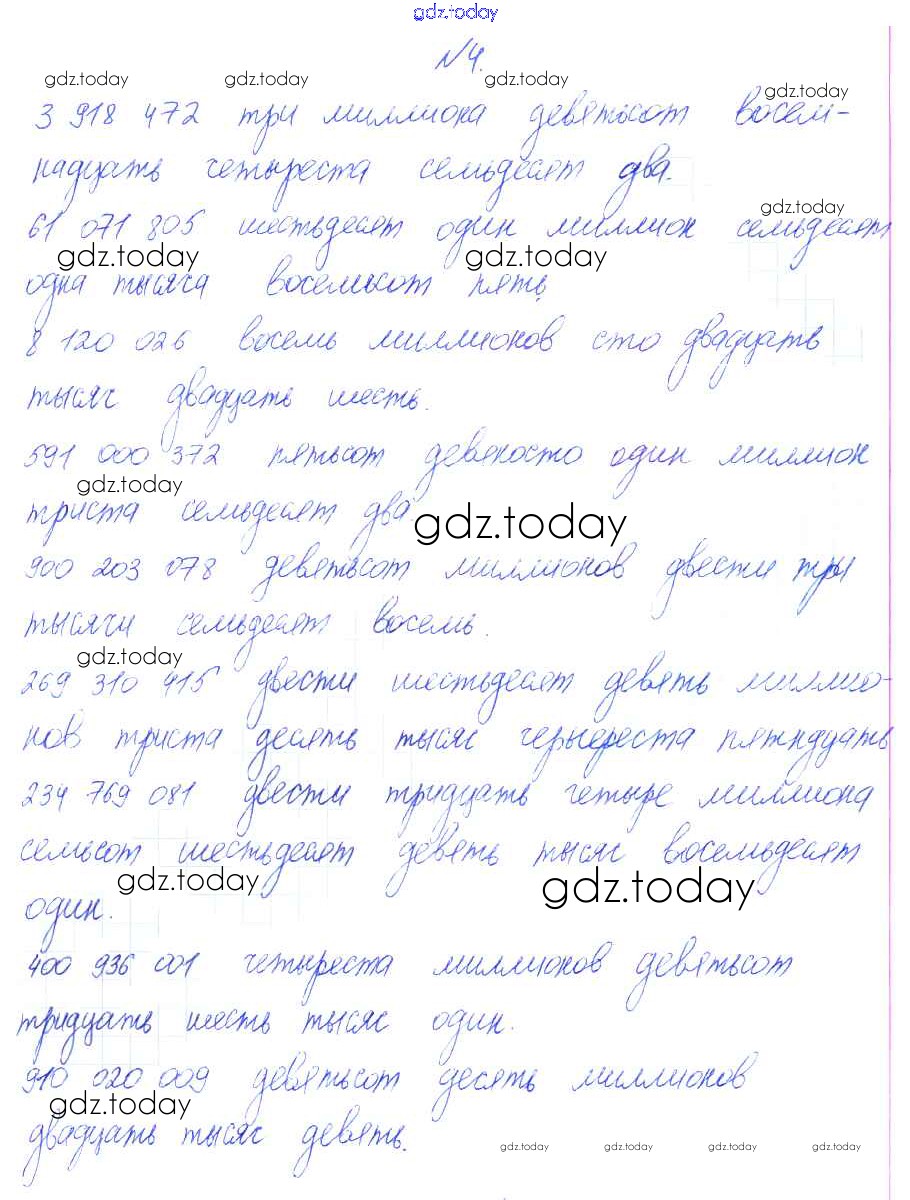 gdz.today
№4.
gdz.today gdz.today gdz.today
3 918 472 три миллиона девятьсот восем-
надцать четыреста семьдесят два.
gdz.today
61 071 805 шестьдесят один миллион семьдесят
gdz.today gdz.today
одна тысяча восемьсот пять
8 120 026 восемь миллионов сто двадцать
тысяч двадцать шесть.
591 000 372 пятьсот девяносто один миллион
gdz.today
триста семьдесят два
gdz.today
900 203 078 девятьсот миллионов двести три
тысячи семьдесят восемь.
gdz.today
269 310 415 двести шестьдесят девять миллио-
нов триста десять тысяч черыереста пятндцать
234 769 081 двести тридцать четыре миллиона
семьсот шестьдесят девять тысяч восемьдесят
gdz.today gdz.today
один.
400 936 001 четыреста миллионов девятьсот
тридцать шесть тысяч один.
910 020 009 девятьсот десять миллионов
gdz.today
двадцать тысяч девять.
gdz.today gdz.today gdz.today gdz.today